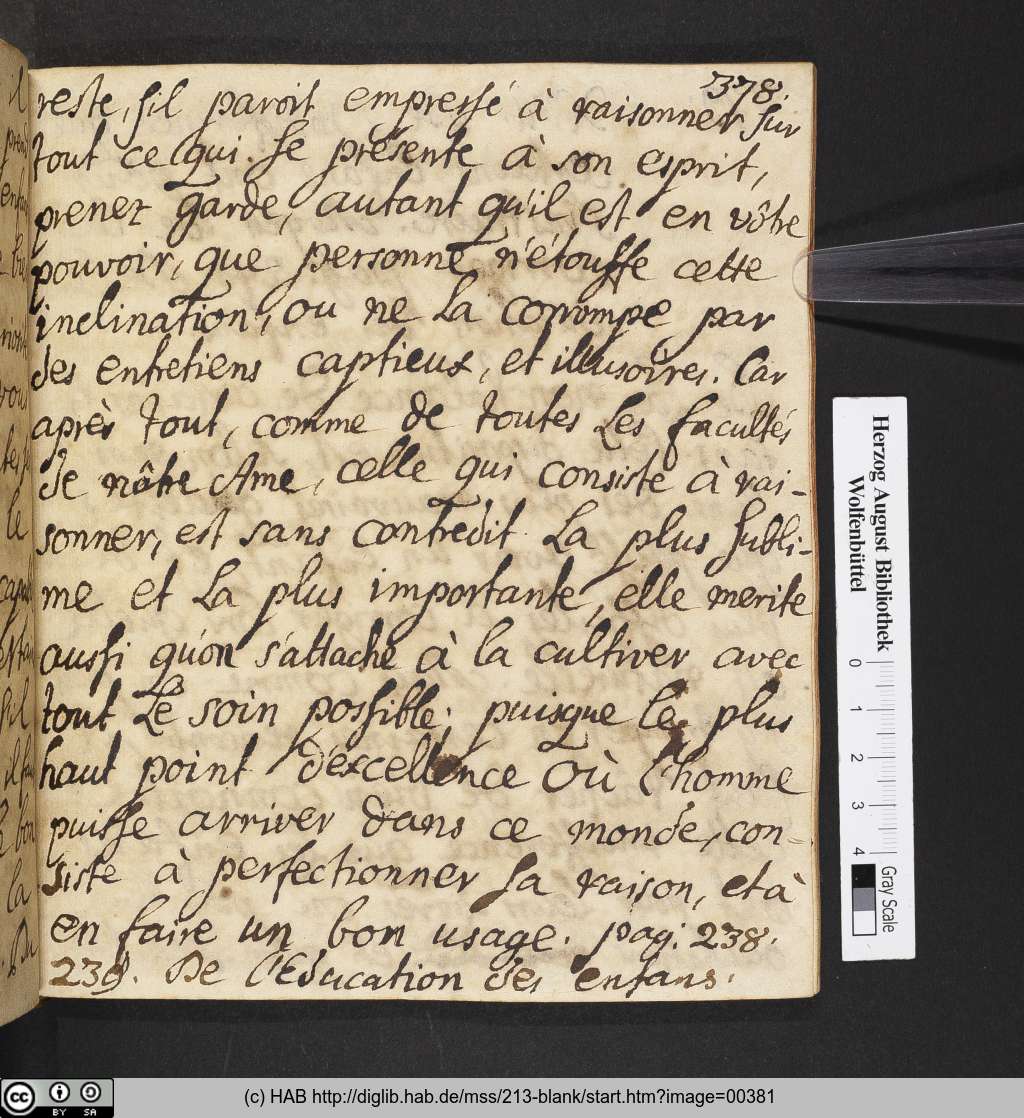 378.
reste, s'il paroit empressé à raisonner sur
tout ce qui se présente à son esprit,
prenez garde, autant qu'il est en vôtre
pouvoir, que personne n'étouffe cette
inclination, ou ne la corrompe par
des entretiens captieux, et illusoires. Car
après tout, comme de toutes les facultés
de nôtre Ame, celle qui consiste à rai-
sonner, est sans contredit la plus subli-
me et la plus importante, elle merite
aussi qu'on s'attache à la cultiver avec
tout le soin possible; puisque le plus
haut point d'excellence où l'homme
puisse arriver dans ce monde, con-
siste à perfectionner sa raison, et à
en faire un bon usage. pag. 238.
239. De l'Education des enfans.
Herzog August Bibliothek
Wolfenbüttel
0 1 2 3 4
Gray Scale
il
le
la
cc BY SA
(c) HAB http://diglib.hab.de/mss/213-blank/start.htm?image=00381